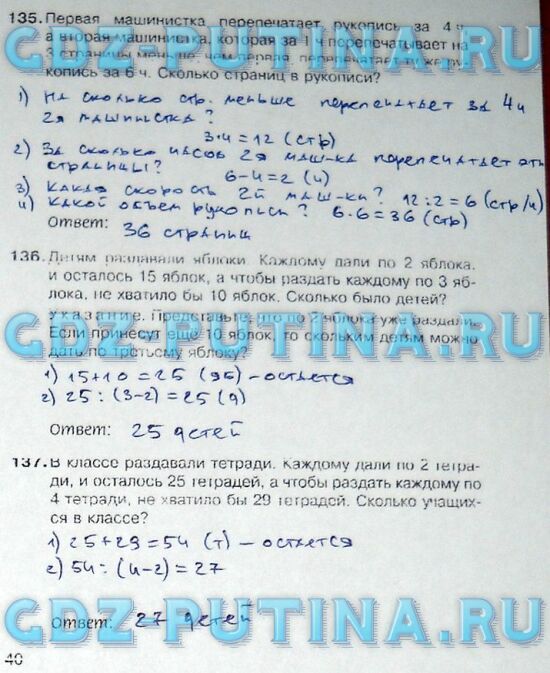 135. Первая машинистка перепечатает рукопись за 4 ч,
а вторая машинистка, которая за 1 ч перепечатывает на
3 страницы меньше, чем первая, перепечатает ту же ру-
копись за 6 ч. Сколько страниц в рукописи?
1) На сколько стр. меньше перепечатает за 4ч
2я машинистка?
3·4=12 (стр)
2) За сколько часов 2я маш-ка перепечатает эти
страницы?
6-4=2 (ч)
3) Какая скорость 2й маш-ки? 12:2=6 (стр/ч)
4) Какой объем рукописи? 6·6=36 (стр)
Ответ: 36 страниц
136. Детям раздавали яблоки. Каждому дали по 2 яблока,
и осталось 15 яблок, а чтобы раздать каждому по 3 яб-
лока, не хватило бы 10 яблок. Сколько было детей?
Указание. Представьте, что по 2 яблока уже раздали.
Если принесут еще 10 яблок, то скольким детям можно
дать по третьему яблоку?
1) 15+10=25 (яб) - остается
2) 25:(3-2)=25 (д)
Ответ: 25 детей
137. В классе раздавали тетради. Каждому дали по 2 тетра-
ди, и осталось 25 тетрадей, а чтобы раздать каждому по
4 тетради, не хватило бы 29 тетрадей. Сколько учащих-
ся в классе?
1) 25+29=54 (т) - остается
2) 54:(4-2)=27
Ответ: 27 детей
40
GDZ-PUTINA.RU
GDZ-PUTINA.RU
GDZ-PUTINA.RU